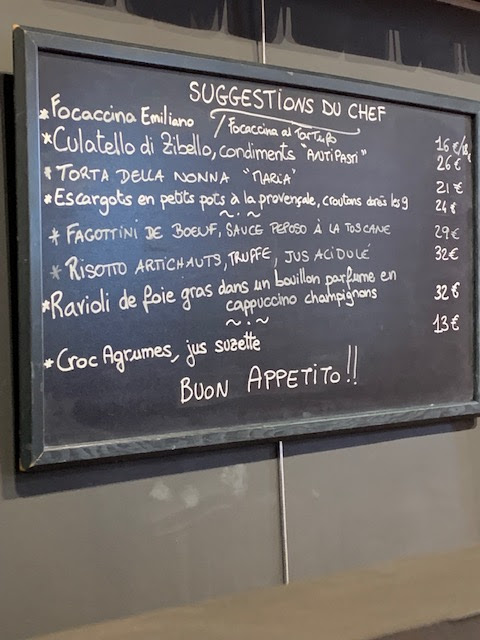 SUGGESTIONS DU CHEF
*Focaccina Emiliano / Focaccina al Tartufo 16€/18€
*Culatello di Zibello, condiments "ANTIPASTI" 26€
*TORTA DELLA NONNA "MARIA" 21€
*Escargots en petits pots à la provençale, croutons dorés les 9 24€
~.~
*FAGOTTINI DE BOEUF, SAUCE PEPOSO À LA TOSCANE 29€
*RISOTTO ARTICHAUTS, TRUFFE, JUS ACIDULÉ 32€
*Ravioli de foie gras dans un bouillon parfumé en
cappuccino champignons 32€
~.~
*Croc Agrumes, jus suzette 13€
BUON APPETITO!!